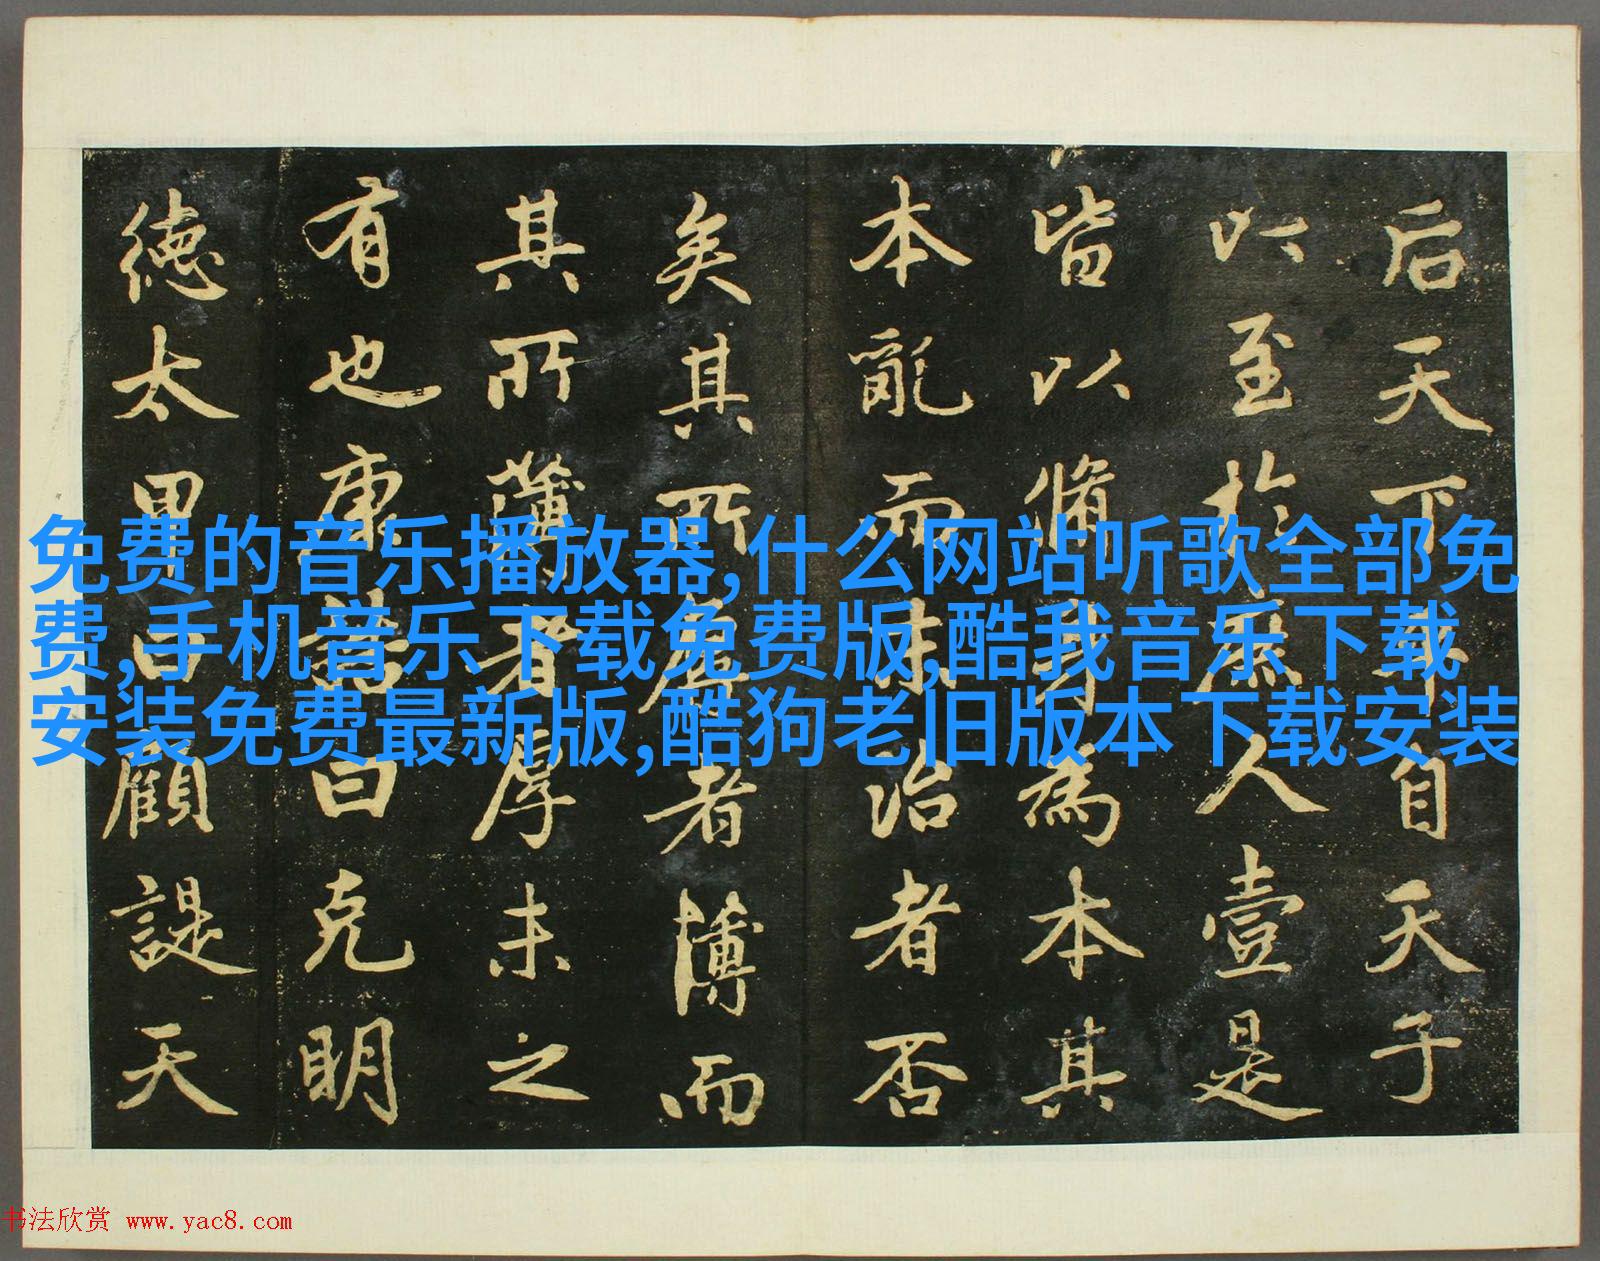 后天下平自天子
以至於庶人壹是
皆以脩身為本其
本亂而末治者否
矣其所厚者薄而
其所薄者厚未之
有也康誥曰克明
德太甲曰顧諟天
免费的音乐播放器,什么网站听歌全部免
费,手机音乐下载免费版,酷我音乐下载
安装免费最新版,酷狗老旧版本下载安装
书法欣赏 www.yac8.com